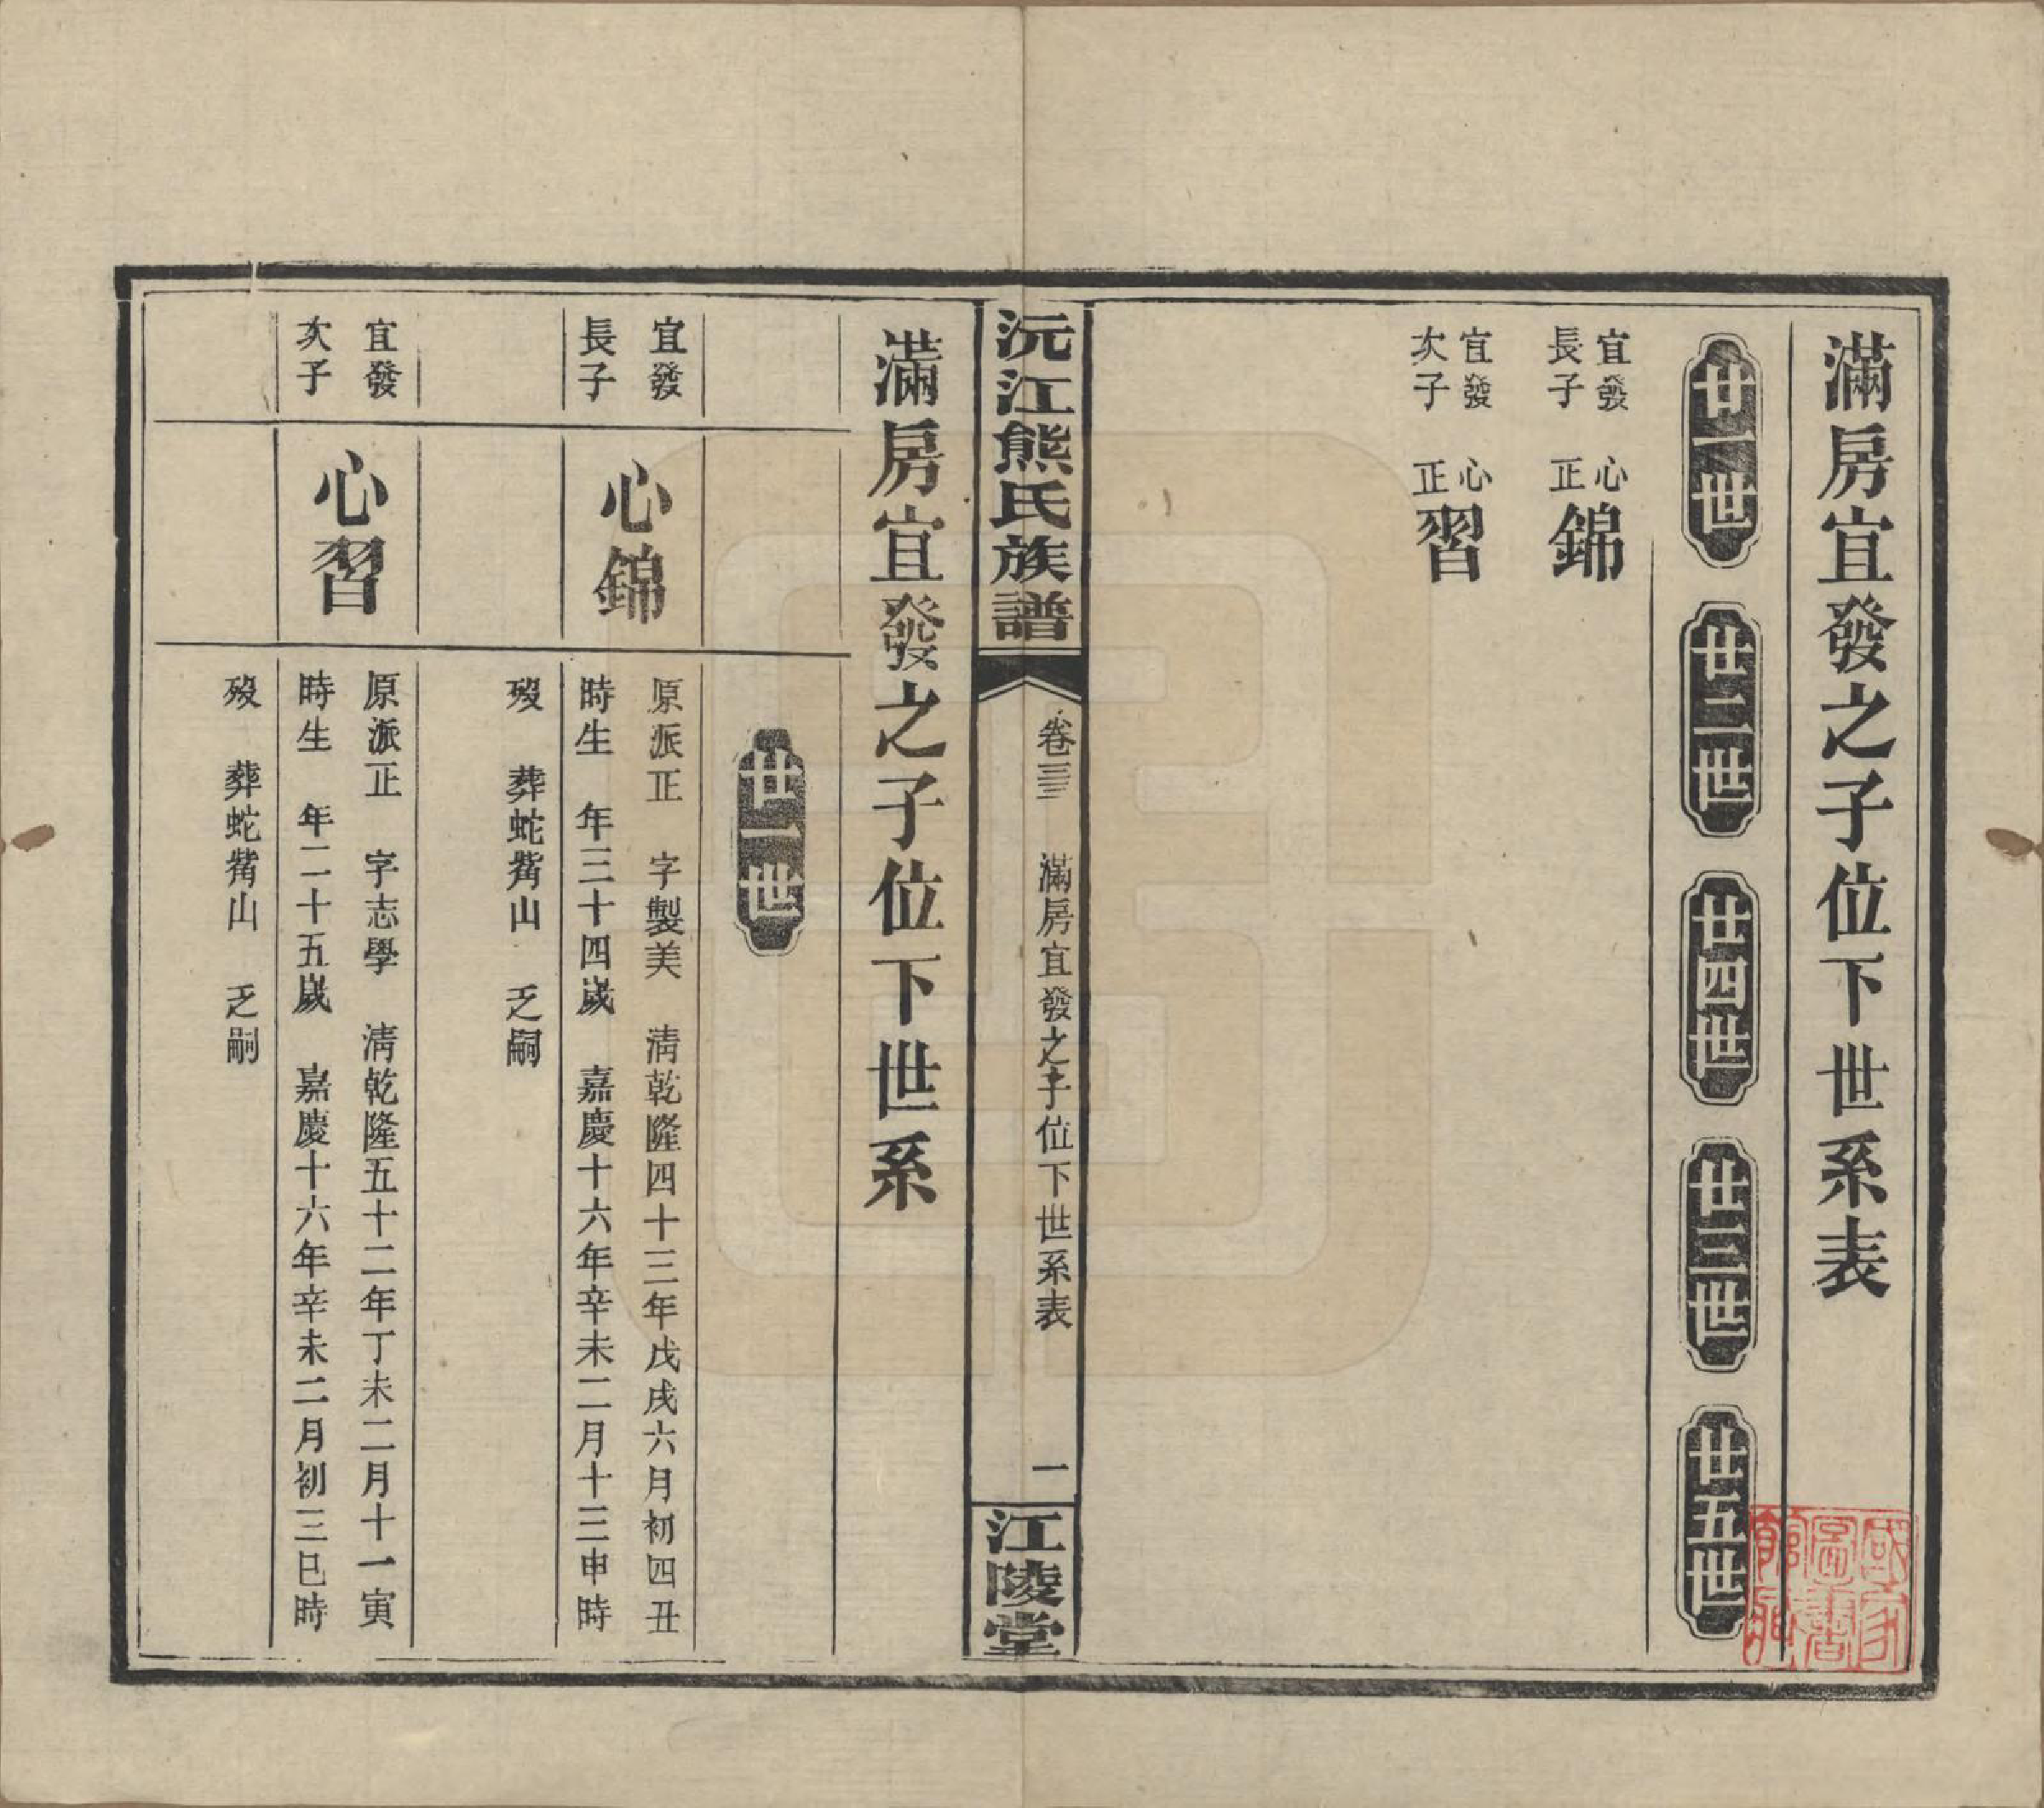 滿房宜發之子位下世系表
廿一世
廿二世
廿四世
廿三世
廿五世
宜發
長子
心
正
錦
宜發
次子
心
正
習
沅江熊氏族譜
卷三三
滿房宜發之子位下世系表
一
江陵堂
滿房宜發之子位下世系
廿一世
宜發
長子
心錦
原派正 字製美 清乾隆四十三年戊戌六月初四丑
時生 年三十四歲 嘉慶十六年辛未二月十三申時
歿 葬蛇觜山 乏嗣
宜發
次子
心習
原派正 字志學 清乾隆五十二年丁未二月十一寅
時生 年二十五歲 嘉慶十六年辛未二月初三巳時
歿 葬蛇觜山 乏嗣